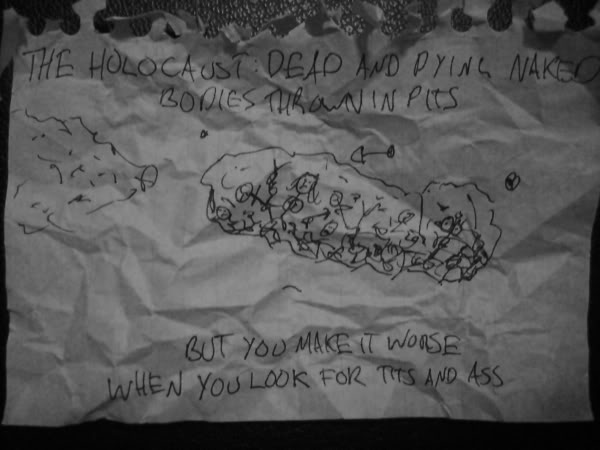 THE HOLOCAUST: DEAD AND DYING NAKED
BODIES THROWN IN PITS
BUT YOU MAKE IT WORSE
WHEN YOU LOOK FOR TITS AND ASS